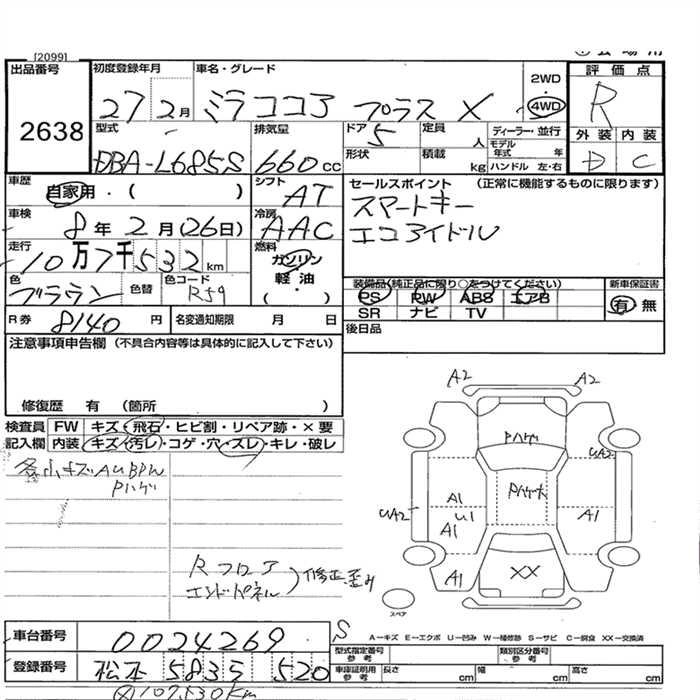 [2099]
出品番号
2638
初度登録年月
27 2月
車名・グレード
ミラココア プラス X
2WD
4WD
評価点
R
型式
DBA-L685S
排気量
660 cc
ドア
5
定員
人
ディーラー・並行
モデル
年式 年
形状
積載
kg
ハンドル 左・右
外装 内装
D C
車歴
自家用・( )
シフト
AT
セールスポイント (正常に機能するものに限ります)
スマートキー
エコアイドル
車検
8年 2月(26日)
冷房
AAC
走行
10万7千532 km
燃料
ガソリン
軽・油
( )
色
ブラウン
色替
色コード
R59
装備品(純正品に限り○をつけてください)
PS PW ABS エアB
SR ナビ TV
新車保証書
有 無
R券 8140 円
名変通知期限 月 日
後日品
注意事項申告欄 (不具合内容等は具体的に記入して下さい)
修復歴 有 (箇所 )
検査員
記入欄
FW キズ・飛石・ヒビ割・リペア跡・×要
内装 キズ・汚レ・コゲ・穴・スレ・キレ・破レ
各小キズAUBPW
Pハゲ
Rフロア
エンドパネル
修正歪み
A2
A2
Pハゲ
UA2
Pハゲ大
A1
U1
A1
UA2
A1
A1
XX
スペア
S
A-キズ E-エクボ U-凹み W-補修跡 S-サビ C-腐食 XX-交換済
車台番号
0024269
登録番号
松本 5835 520
型式指定番号
参考
類別区分番号
参考
車庫証明用
参考
長さ cm
幅 cm
高さ cm
107530Km